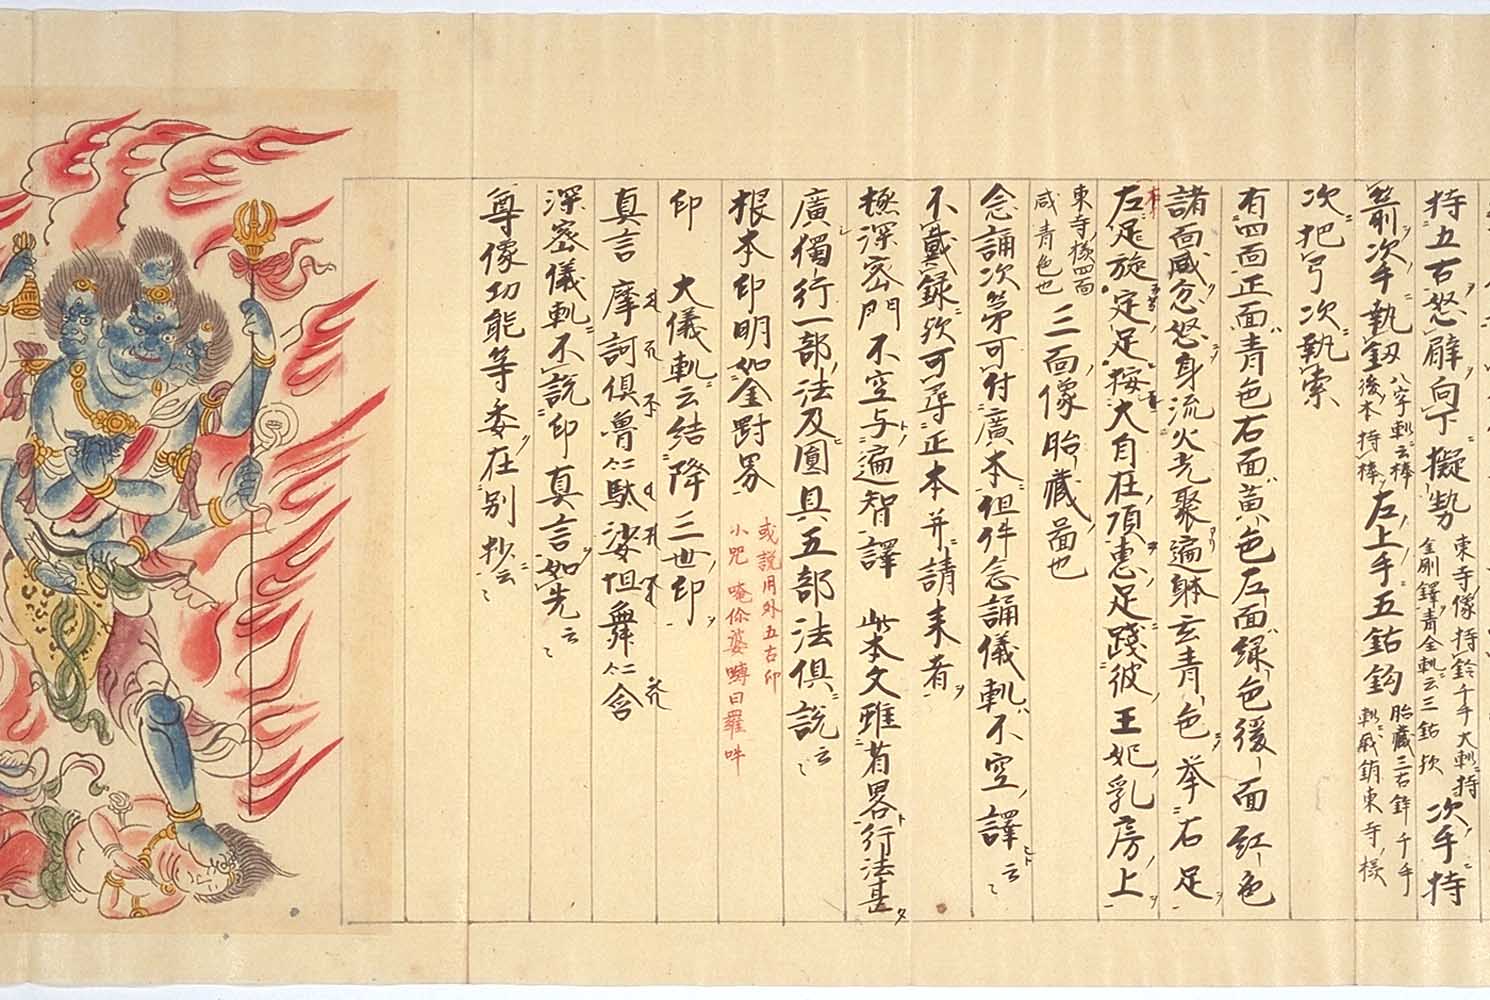 持五古怒臂向下擬勢 東寺像持鈴千手大軌持
金剛鐸青金軌云三鈷欤 次手持
箭次手執釼 八字軌云棒
後本持棒 左上手五鈷鈎 胎藏三古鉾千手
軌戟鎙東寺樣
次把弓次執索
有四面正面青色右面黄色左面緑色後面紅色
諸面咸忿怒身流火光聚遍躰玄青色举右足
左足旋定足按大自在頂惠足踐彼王妃乳房上
東寺樣四面
咸青色也 三面像胎藏啚也
念誦次第可付廣本但件念誦儀軌不空譯云々
不載録欤可尋正本并請来者
極深密門不空与遍智譯 此本文雖有畧行法甚
廣獨行一部法及圓具五部法俱説云々
根本印明如金對畧 或説用外五古印
小咒 唵儞婆嚩日羅吽
印 大儀軌云結降三世印
真言 摩訶俱嚕仁駄娑怛舞仁含
深密儀軌不説印真言如先云々
尊像功能等委在別抄云々